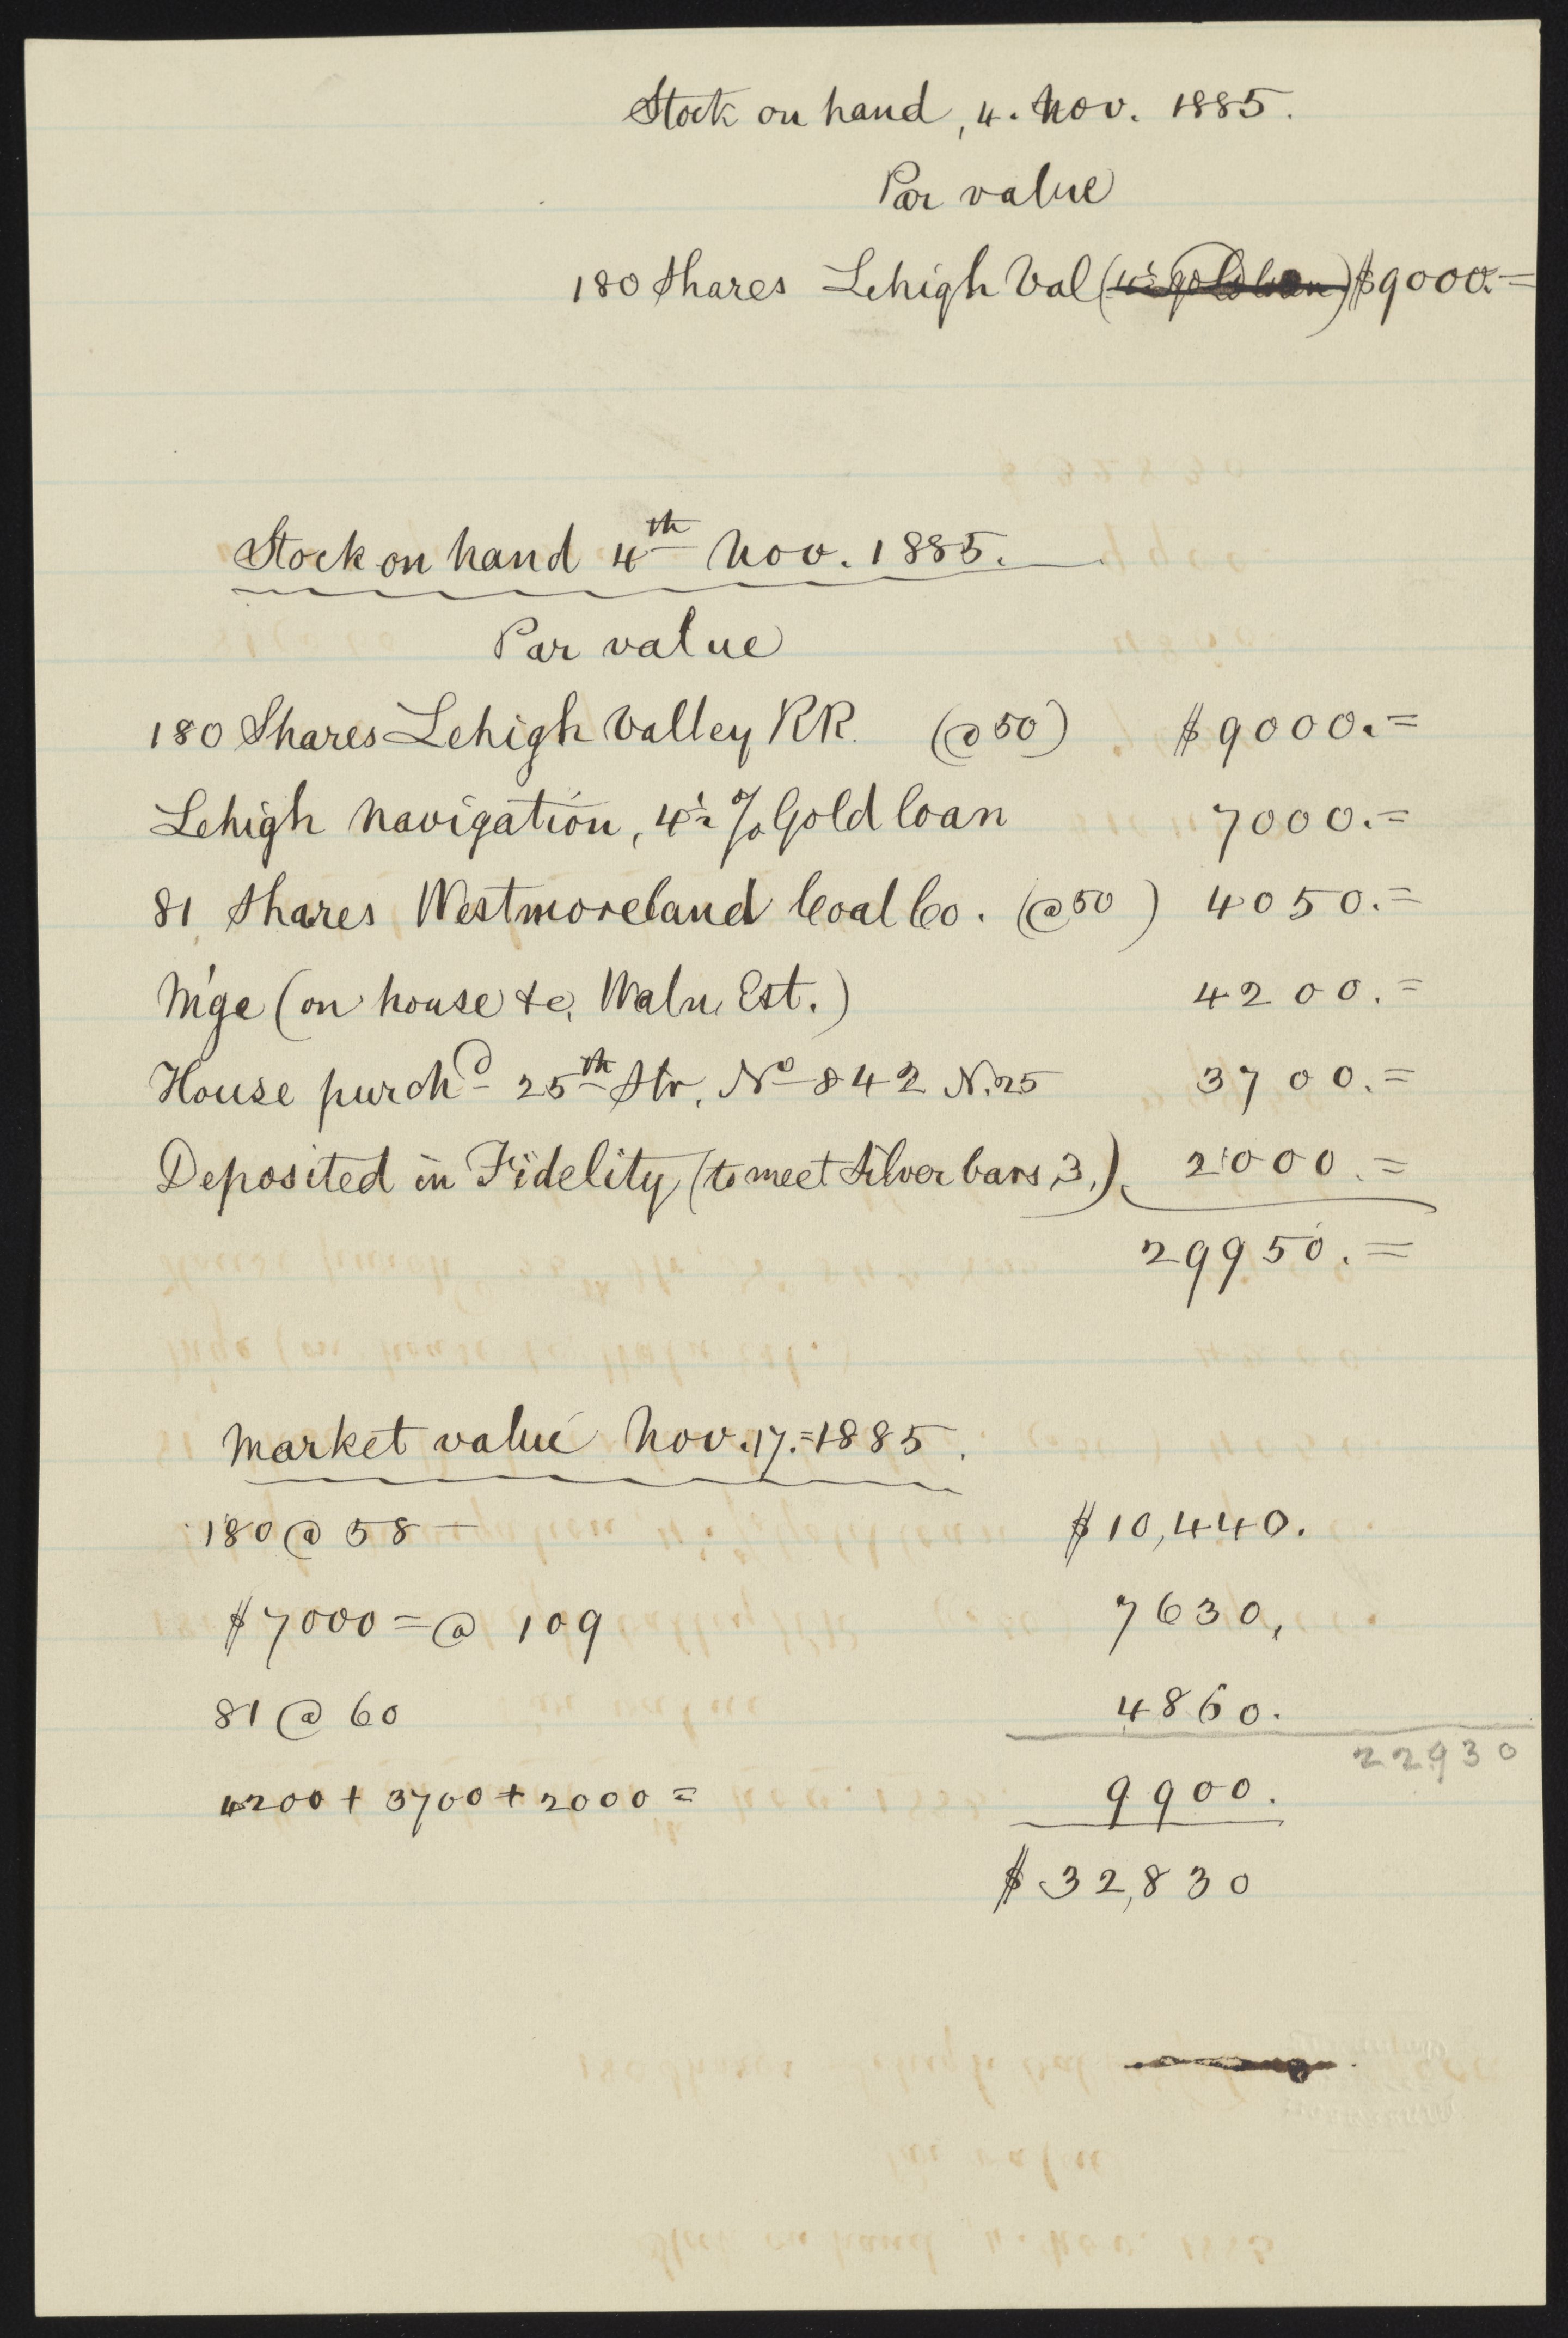 Stock on hand, 4. Nov. 1885.
Par value
180 Shares Lehigh Val (4½ gold loan) $9000.=
Stock on hand 4th Nov. 1885.
Par value
180 Shares Lehigh Valley RR. (@ 50) $9000.=
Lehigh Navigation, 4½ % Gold loan 7000.=
81 Shares Westmoreland Coal Co. (@ 50) 4050.=
M'ge (on house &c, Waln Est.) 4200.=
House purchd 25th Str. No 842 N. 25 3700.=
Deposited in Fidelity (to meet Silver bars, 3,) 2000.=
29950.=
Market value Nov. 17.=1885.
180 @ 58 — $10,440.
$7000= @ 109 7630,
81 @ 60 4860.
22930
4200 + 3700 + 2000 = 9900.
$32,830